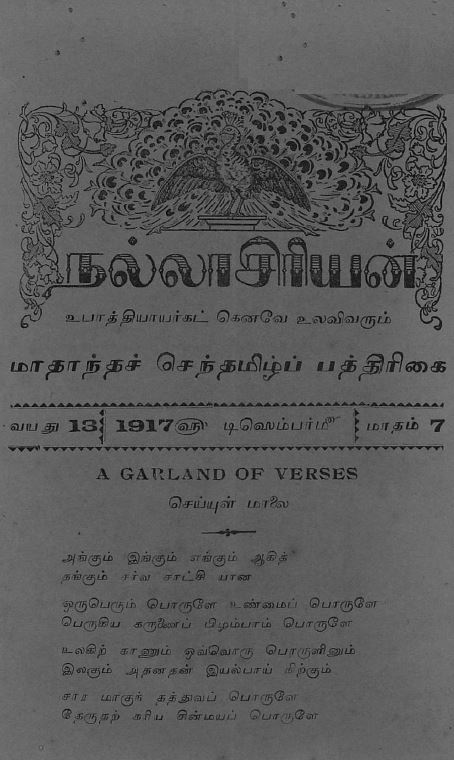 நல்லாசிரியன்
உபாத்தியாயர்கட் கெனவே உலவிவரும்
மாதாந்தச் செந்தமிழ்ப் பத்திரிகை
வயது 13 1917௵ டிஸெம்பர்௴ மாதம் 7
A GARLAND OF VERSES
செய்யுள் மாலை
அங்கும் இங்கும் எங்கும் ஆகித்
தங்கும் சர்வ சாட்சி யான
ஒருபெரும் பொருளே உண்மைப் பொருளே
பெருகிய கருணைப் பிழம்பாம் பொருளே
உலகிற் காணும் ஒவ்வொரு பொருளினும்
இலகும் அதனதன் இயல்பாய் நிற்கும்
சார மாகுந் தத்துவப் பொருளே
தேருதற் கரிய சின்மயப் பொருளே